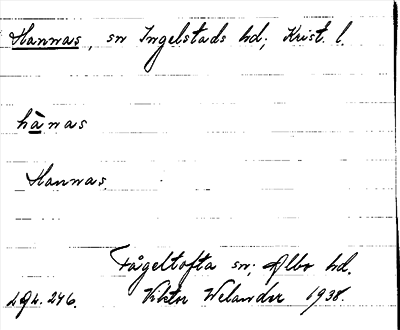 Hannas, sn Ingelstads hd; Krist. l.
hànas
Hannas
Fågeltofta sn; Albo hd.
Lgh. 246. Viktor Welander 1938.